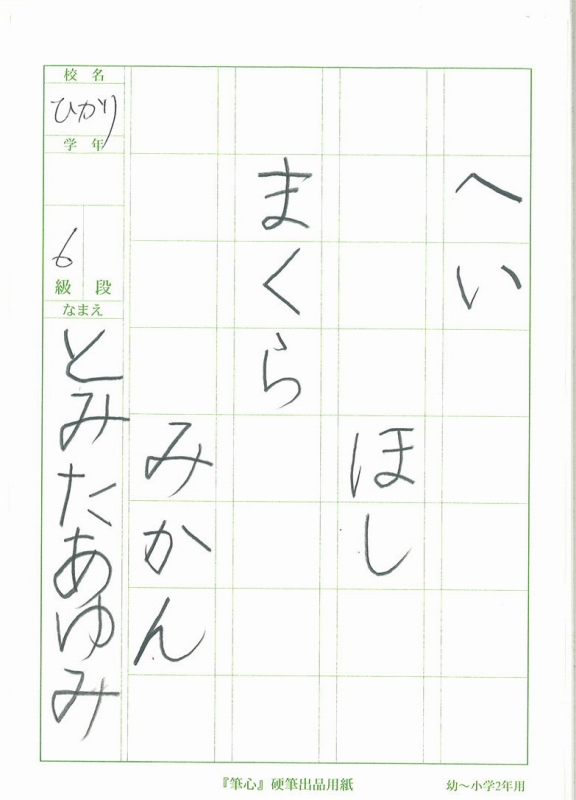 へい
ほし
まくら
みかん
校名
ひかり
学年
6
級 段
なまえ
とみたあゆみ
『筆心』硬筆出品用紙
幼～小学2年用